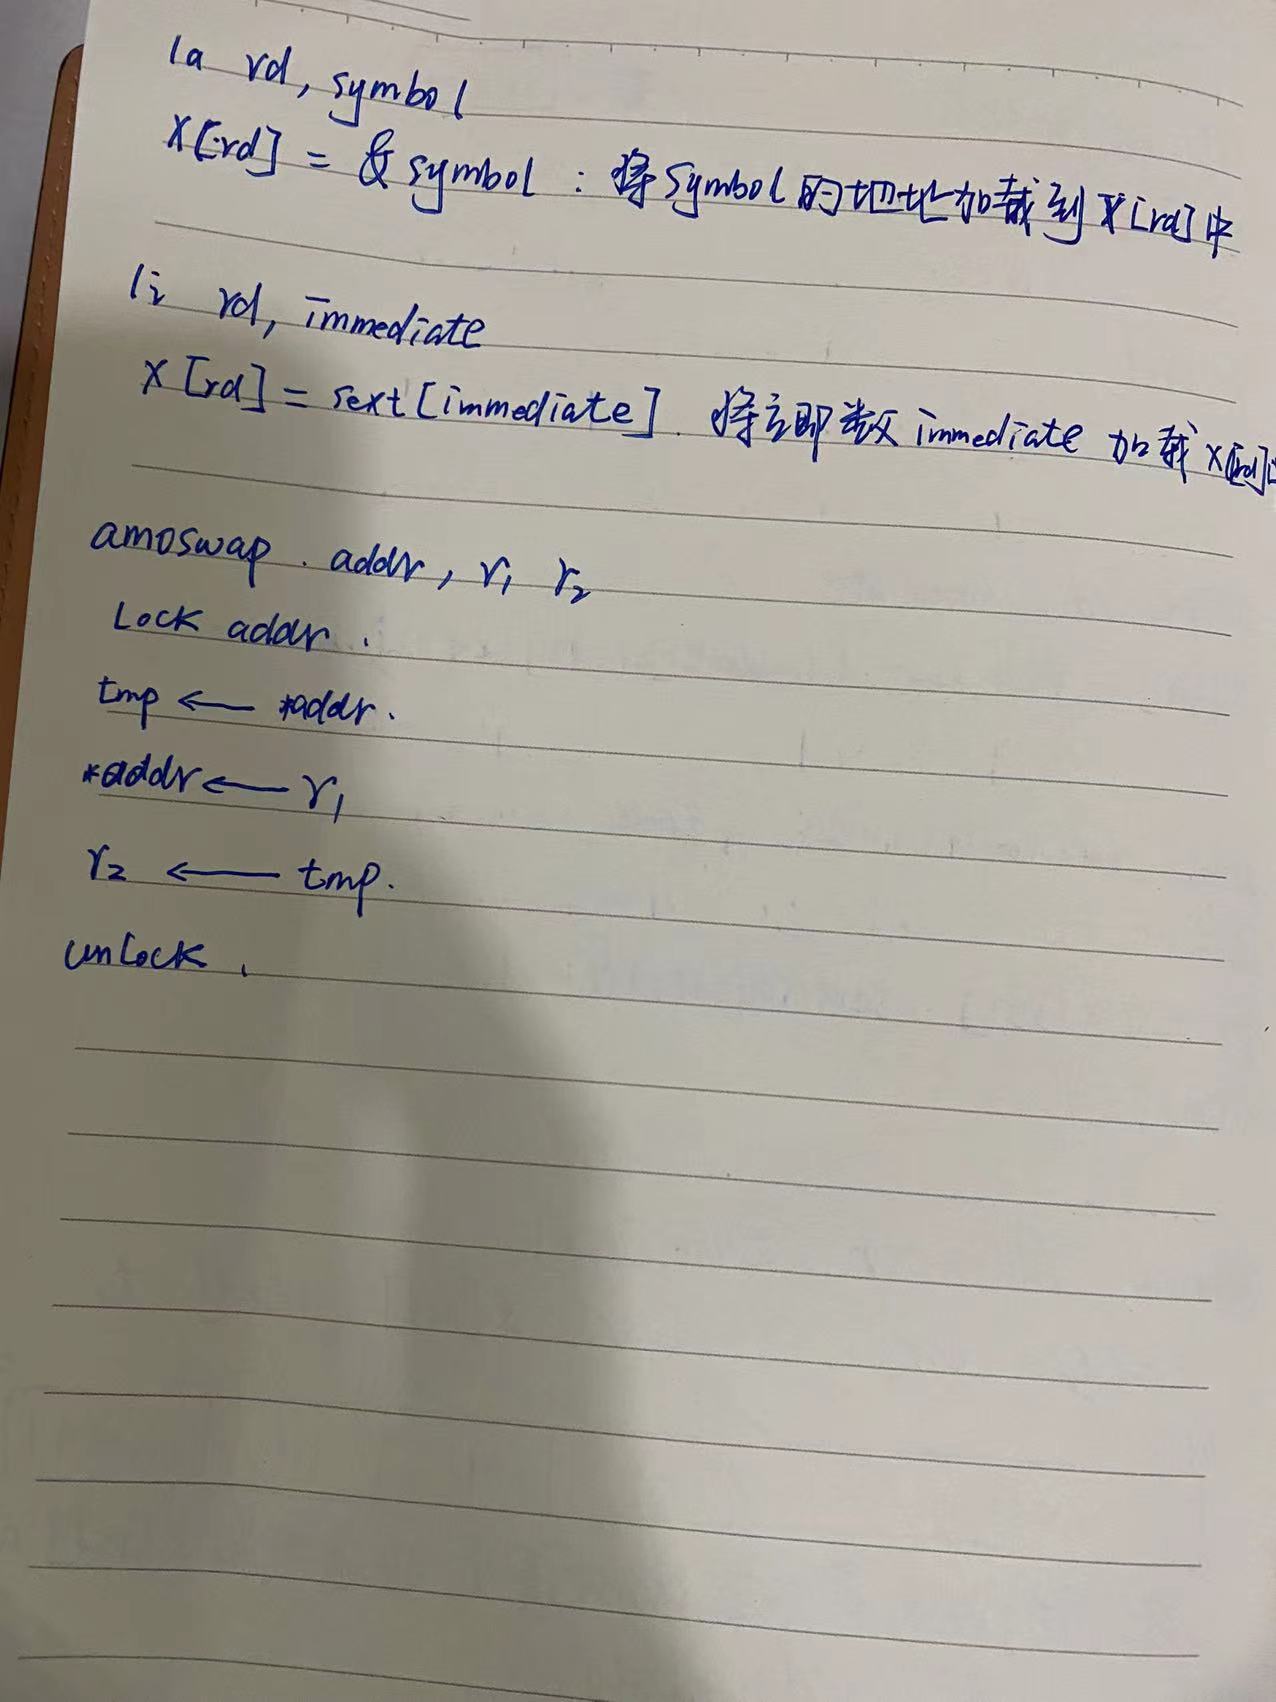 la rd, symbol
X[rd] = & symbol : 将symbol的地址加载到X[rd]中
li rd, immediate
X[rd] = sext[immediate]. 将立即数immediate 加载X[rd]
amoswap. addr, r1 r2
Lock addr.
tmp ← *addr.
*addr ← r1
r2 ← tmp.
unlock,